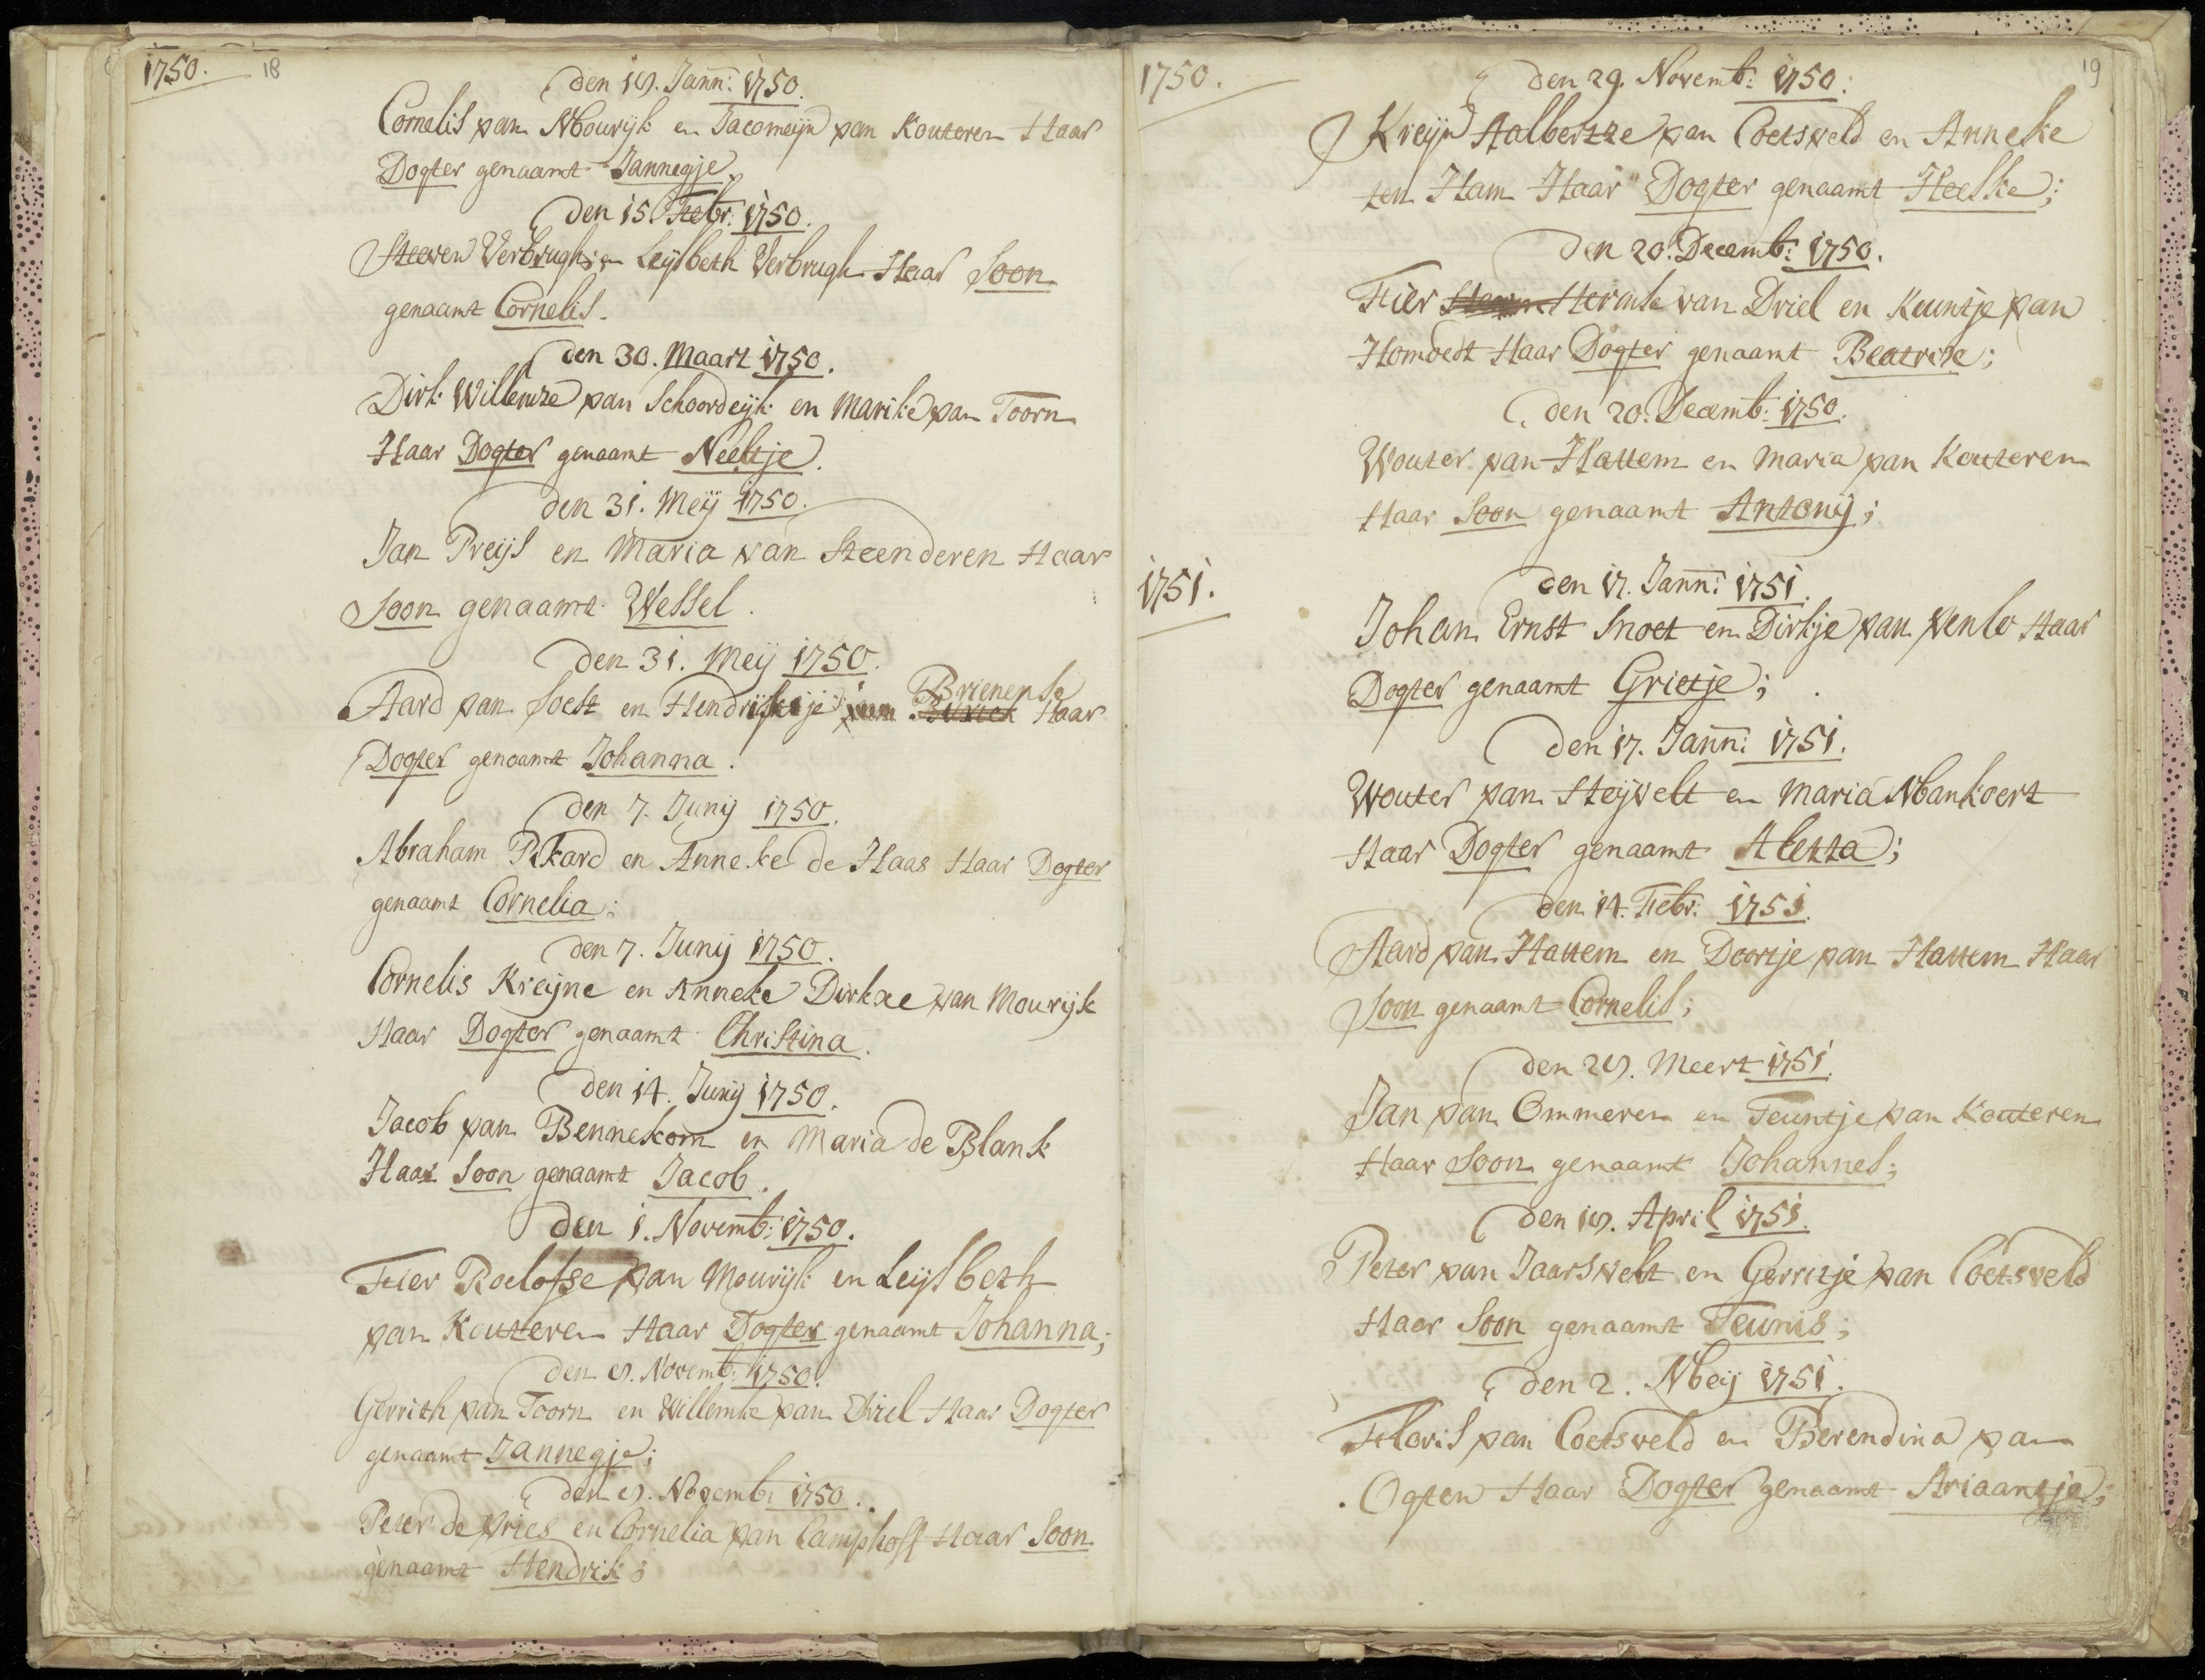 1750. 18
den 19. Jann: 1750.
Cornelis van Mourijk en Jacomeijn van Kouteren Haar
Dogter genaamt Jannegje
den 15 Febr: 1750.
Steeven Verbrugh en Leijsbeth Verbrugh Haar Soon
genaamt Cornelis.
den 30. Maart 1750.
Dirk Willemze van Schoordeijk en Marike van Toorn
Haar Dogter genaamt Neeltje.
den 31. Meij 1750.
Jan Preijs en Maria van Steenderen Haar
Soon genaamt Wessel.
den 31. Meij 1750.
Brienense
Aard van Soest en Hendrijkije van Haar
Dogter genaamt Johanna.
den 7. Junij 1750.
Abraham Pikard en Anneke de Haas Haar Dogter
genaamt Cornelia:
den 7. Junij 1750.
Cornelis Kreijne en Anneke Dirkze van Mourijk
Haar Dogter genaamt Christina.
den 14. Junij 1750.
Jacob van Bennekom en Maria de Blank
Haar Soon genaamt Jacob.
den 1. Novemb: 1750.
Fier Roelofse van Mourijk en Leijsbeth
van Kouteren Haar Dogter genaamt Johanna;
den 9. Novemb: 1750.
Gerrith van Toorn en Willemke van Driel Haar Dogter
genaamt Jannegje;
den 9. Novemb: 1750.
Peter de Vries en Cornelia van Camphoff Haar Soon
genaamt Hendrik;
1750. 19
den 29. Novemb: 1750:
Kreijn Aalbertze van Coetsveld en Anneke
ten Ham Haar Dogter genaamt Heelke;
den 20. Decemb: 1750.
Fier Hermke van Driel en Keuntje van
Homoedt Haar Dogter genaamt Beatrixe;
den 20. Decemb: 1750.
Wouter van Hattem en Maria van Kouteren
Haar Soon genaamt Antonij;
1751.
den 17. Jann: 1751.
Johan Ernst Snoet en Dirkje van Venlo Haar
Dogter genaamt Grietje;
den 17. Jann: 1751.
Wouter van Steijvelt en Maria Mankoert
Haar Dogter genaamt Aletta;
den 14. Febr: 1751.
Aard van Hattem en Doortje van Hattem Haar
Soon genaamt Cornelis;
den 29. Meert 1751.
Jan van Ommeren en Teuntje van Kouteren
Haar Soon genaamt Johannes;
den 19. April 1751.
Peter van Jaarsvelt en Gerritje van Coetsveld
Haar Soon genaamt Teunis;
den 2. Meij 1751.
Floris van Coetsveld en Berendina van
Ogten Haar Dogter genaamt Ariaantje;